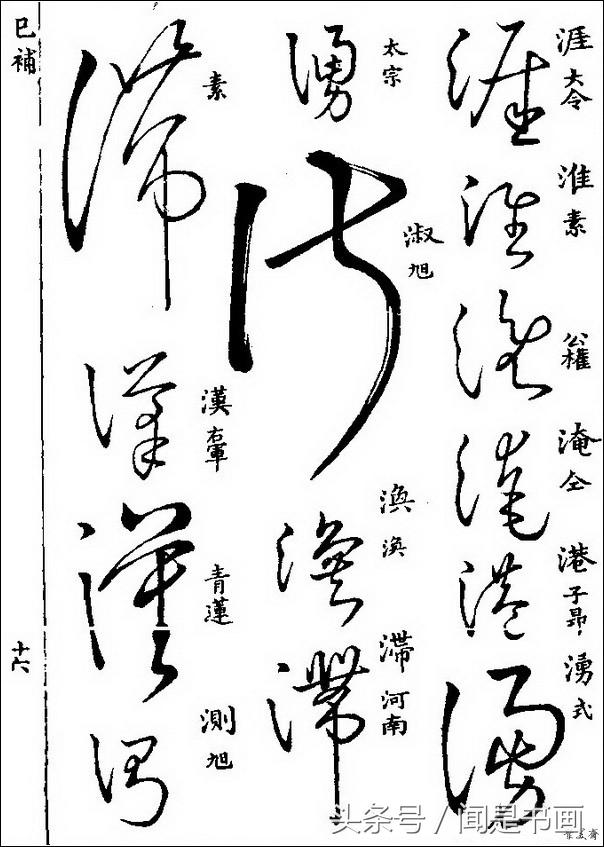 涯 大令
淮 素
公權
淹 仝
港 子昂
湧 式
太宗
淑 旭
渙
滯 河南
素
漢 右軍
青蓮
測 旭
巳補
十六
头条号 / 闻是书画